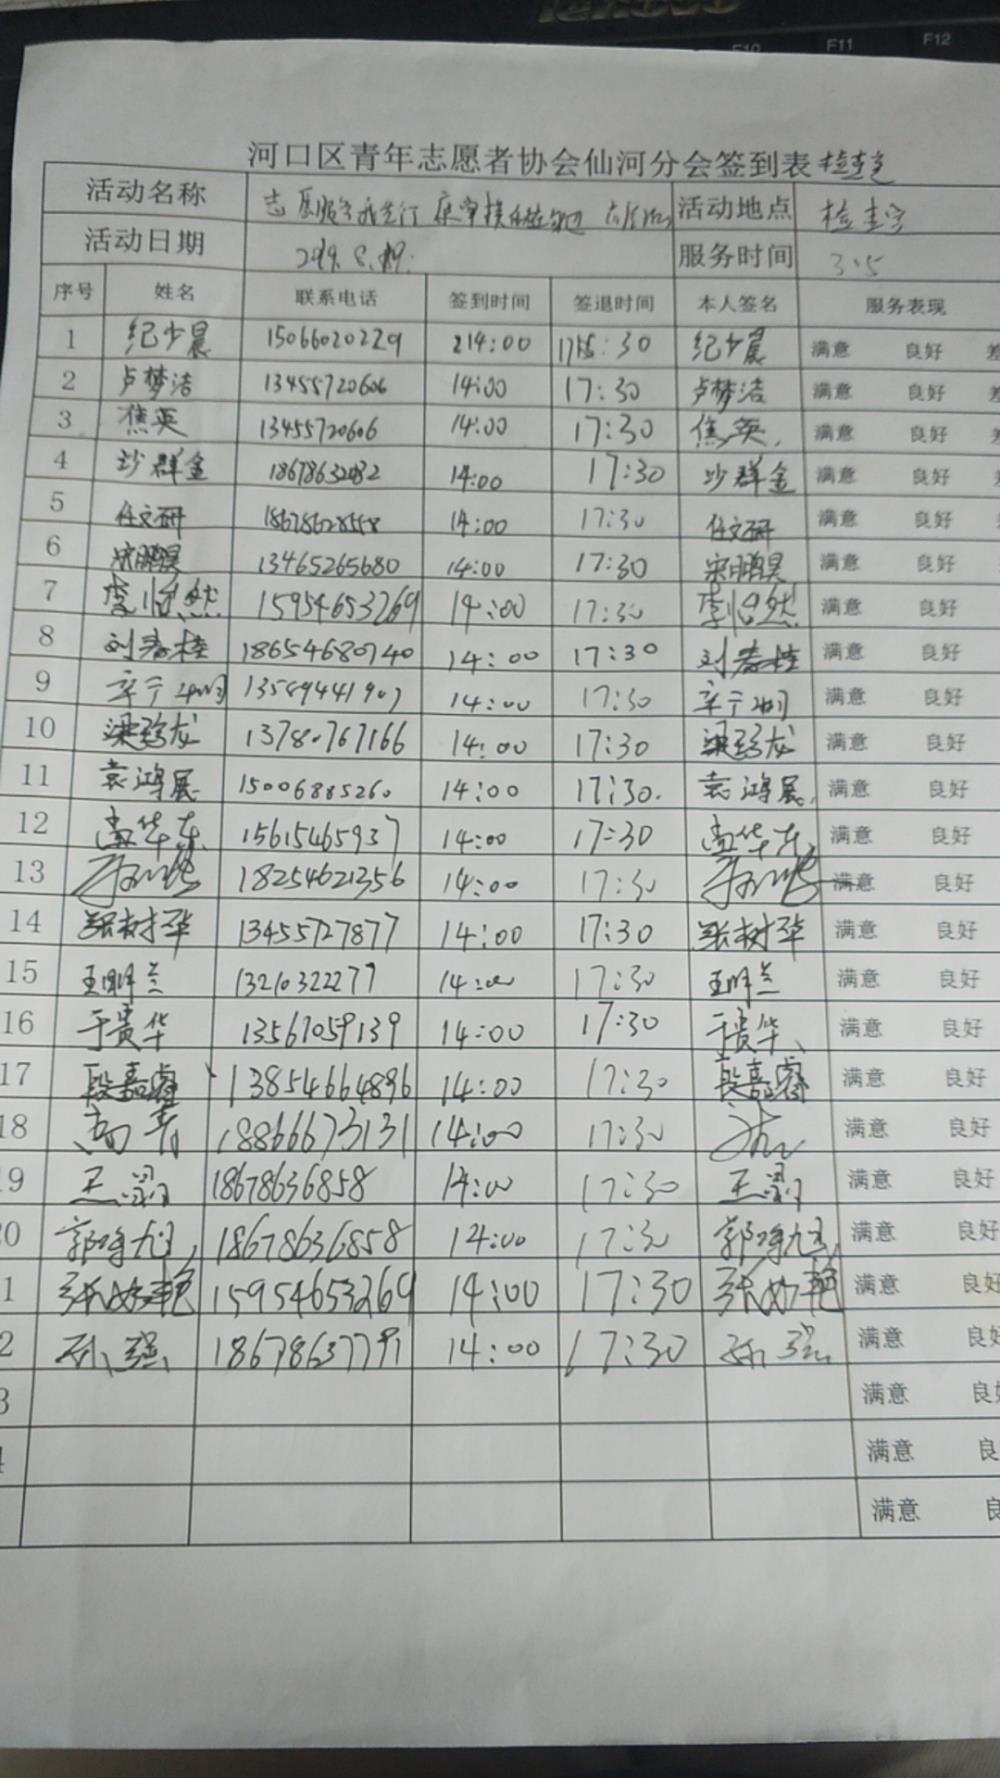 lenovo
F10 F11 F12
河口区青年志愿者协会仙河分会签到表 检查室
活动名称 志愿服务我先行 活动地点 检查室
活动日期 服务时间 3.5
序号 姓名 联系电话 签到时间 签退时间 本人签名 服务表现
1 纪少晨 15066020229 14:00 17:30 纪少晨 满意 良好 差
2 卢梦洁 13455720606 14:00 17:30 卢梦洁 满意 良好 差
3 焦英 13455720606 14:00 17:30 焦英 满意 良好 差
4 沙群金 18678632082 14:00 17:30 沙群金 满意 良好
5 任文研 18678628558 14:00 17:30 任文研 满意 良好
6 宋鹏昊 13465265680 14:00 17:30 宋鹏昊 满意 良好
7 李怡然 15954653269 14:00 17:30 李怡然 满意 良好
8 刘春桂 18654680740 14:00 17:30 刘春桂 满意 良好
9 13589441907 14:00 17:30 满意 良好
10 梁珍龙 13780767166 14:00 17:30 梁珍龙 满意 良好
11 袁鸿展 15006885260 14:00 17:30 袁鸿展 满意 良好
12 华东 15615465937 14:00 17:30 华东 满意 良好
13 18254621356 14:00 17:30 满意 良好
14 张树华 13455727877 14:00 17:30 张树华 满意 良好
15 王明兰 13210322277 14:00 17:30 王明兰 满意 良好
16 于贵华 13567059139 14:00 17:30 于贵华 满意 良好
17 段嘉睿 13854664896 14:00 17:30 段嘉睿 满意 良好
18 高青 18866673131 14:00 17:30 满意 良好
19 18678636858 14:00 17:30 满意 良好
0 18678636858 14:00 17:30 满意 良好
1 15954653269 14:00 17:30 满意 良好
2 孙强 18678637791 14:00 17:30 孙强 满意 良好
3 满意 良好
4 满意 良
满意 良